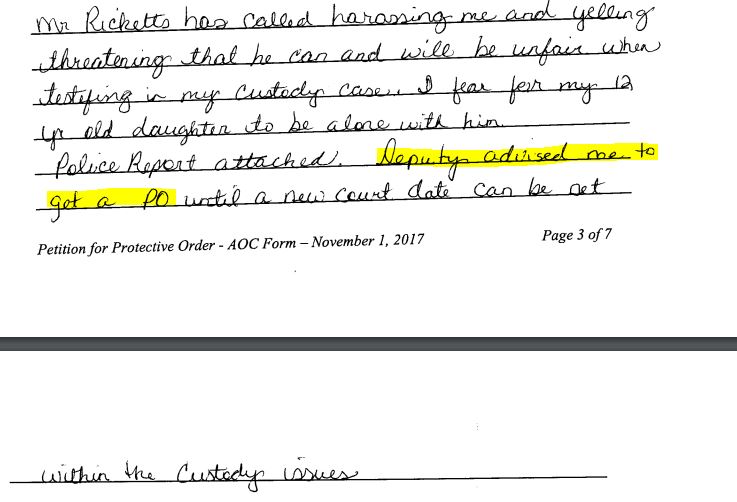 Mr Ricketts has called harassing me and yelling
threatening that he can and will be unfair when
testifing in my Custody case. I fear for my 12
yr old daughter to be alone with him
Police Report attached. Deputy advised me to
get a PO until a new court date can be set
Petition for Protective Order - AOC Form – November 1, 2017
Page 3 of 7
within the Custody issues